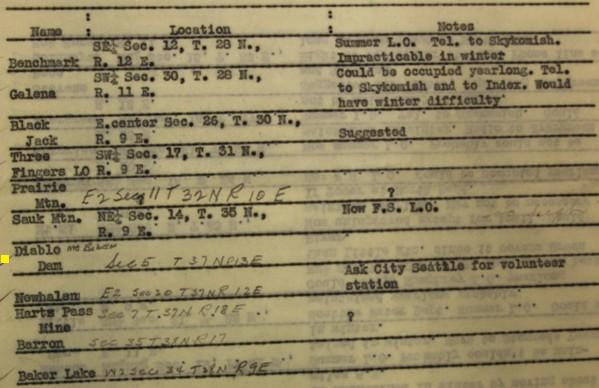 Name : Location : Notes
SE¼ Sec. 12, T. 28 N., Summer L.O. Tel. to Skykomish.
Benchmark R. 12 E. Impracticable in winter
SW¼ Sec. 30, T. 28 N., Could be occupied yearlong. Tel.
Galena R. 11 E. to Skykomish and to Index. Would
have winter difficulty
Black E.center Sec. 26, T. 30 N.,
Jack R. 9 E. Suggested
Three SW¼ Sec. 17, T. 31 N.,
Fingers LO R. 9 E.
Prairie
Mtn. E2 Sec 11 T 32N R 10 E ?
Sauk Mtn. NE¼ Sec. 14, T. 35 N., Now F.S. L.O.
R. 9 E.
Diablo
Dam Sec 5 T 37N R13E Ask City Seattle for volunteer
station
Newhalem E2 Sec 20 T37N R12E
Harts Pass Sec 7 T.37N R18E ?
Mine
Barron Sec 35 T38N R17
Baker Lake W2 Sec 34 R9E